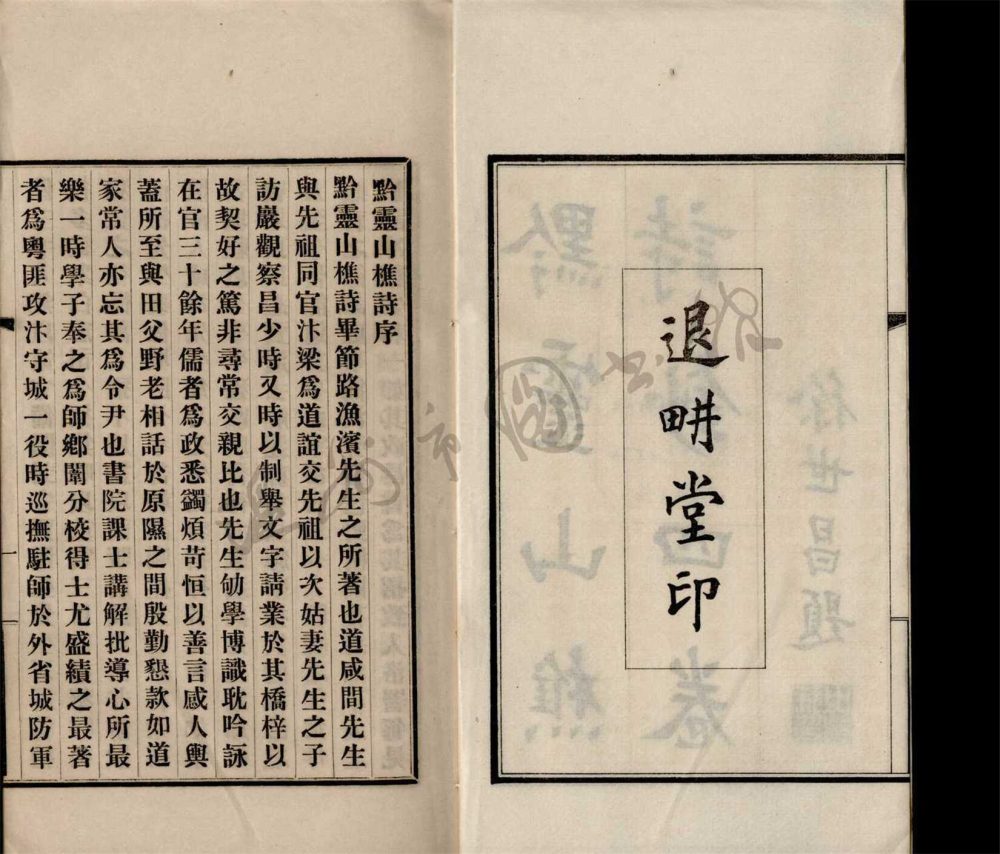 退畊堂印
黔靈山樵詩序
黔靈山樵詩畢節路漁濱先生之所著也道咸間先生
與先祖同官汴梁為道誼交先祖以次姑妻先生之子
訪巖觀察昌少時又時以制舉文字請業於其橋梓以
故契好之篤非尋常交親比也先生劬學博識耽吟詠
在官三十餘年儒者為政悉蠲煩苛恒以善言感人輿
蓋所至與田父野老相話於原隰之間殷勤懇款如道
家常人亦忘其為令尹也書院課士講解批導心所最
樂一時學子奉之為師鄉闈分校得士尤盛績之最著
者為粵匪攻汴守城一役時巡撫駐師於外省城防軍